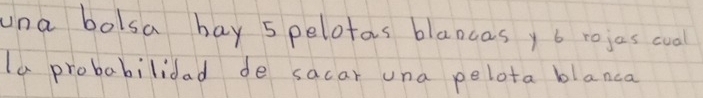 una bolsa hay 5 pelotas blancas y 6 rojas cual
la probabilidad de sacar una pelota blanca